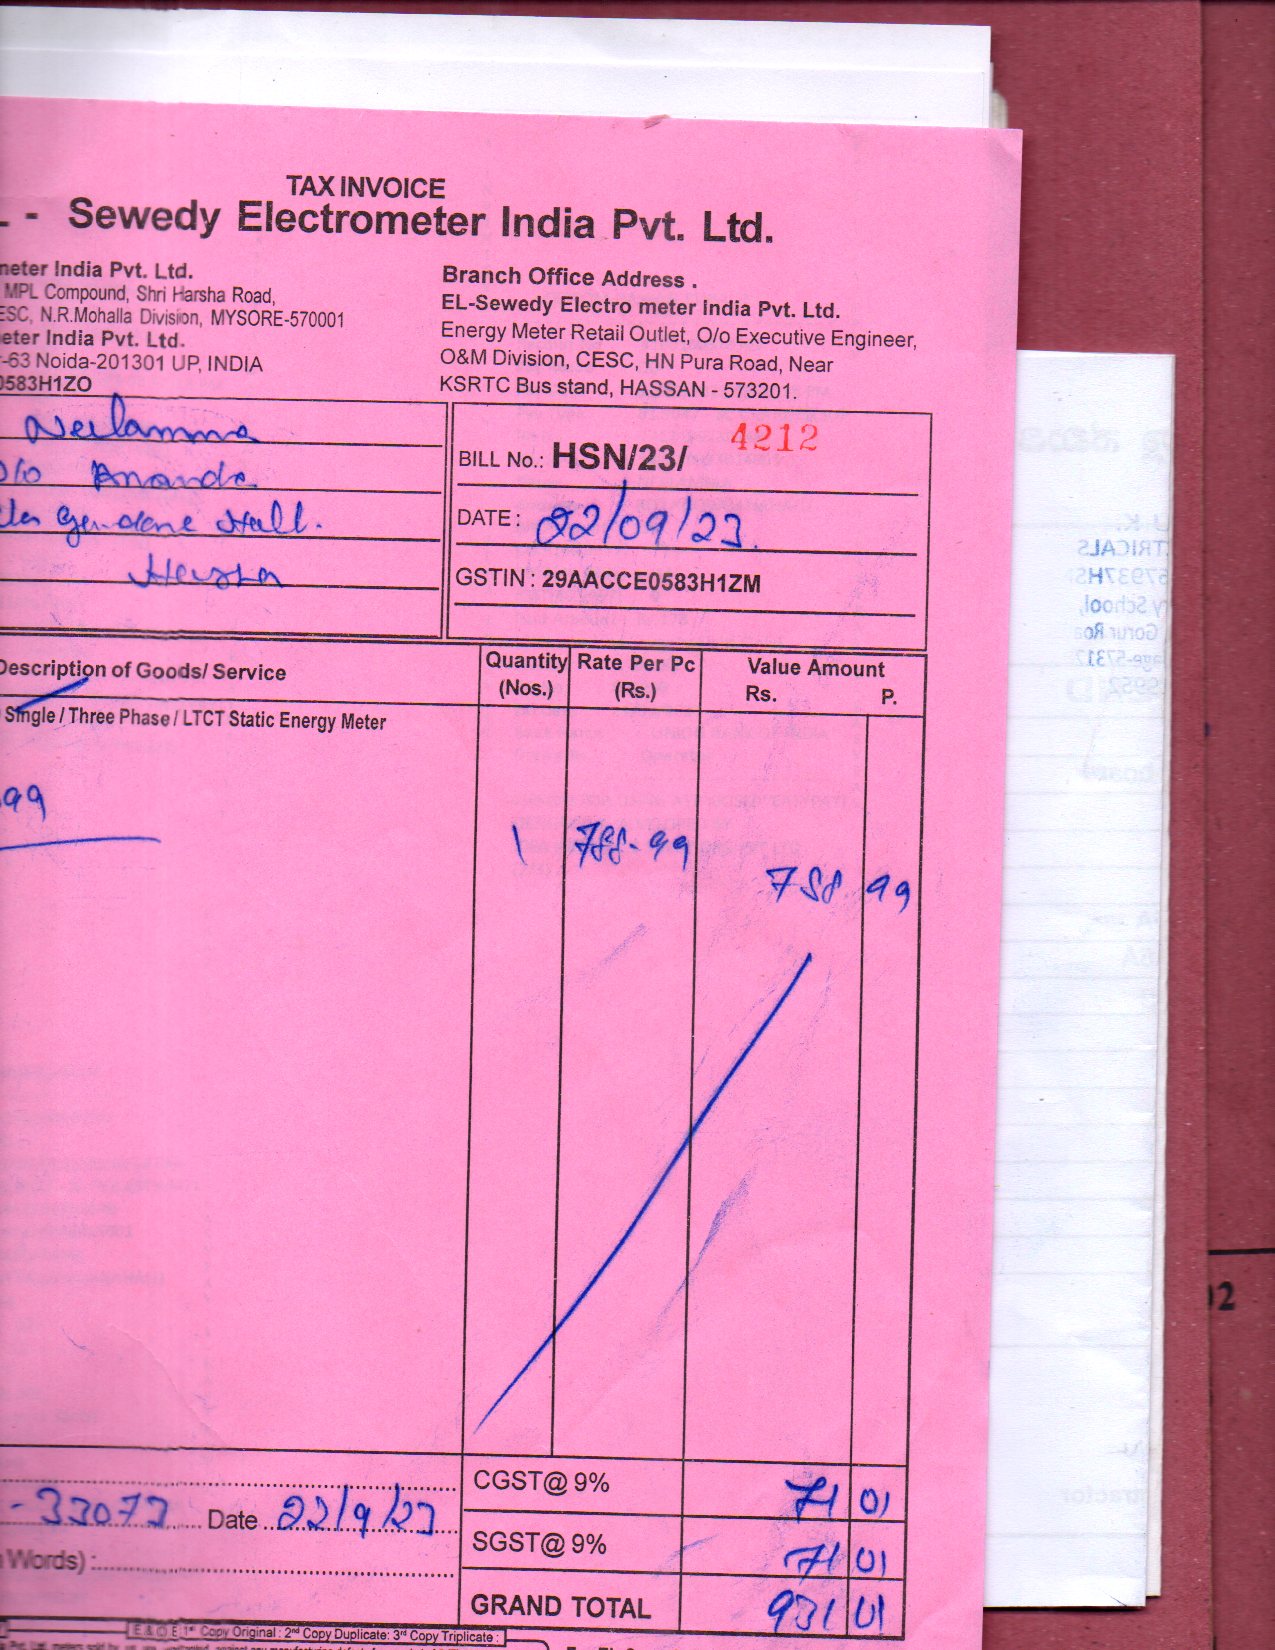 TAX INVOICE
- Sewedy Electrometer India Pvt. Ltd.
meter India Pvt. Ltd.
MPL Compound, Shri Harsha Road,
ESC, N.R.Mohalla Division, MYSORE-570001
eter India Pvt. Ltd.
-63 Noida-201301 UP, INDIA
0583H1ZO
Branch Office Address .
EL-Sewedy Electro meter India Pvt. Ltd.
Energy Meter Retail Outlet, O/o Executive Engineer,
O&M Division, CESC, HN Pura Road, Near
KSRTC Bus stand, HASSAN - 573201.
Neelamma
D/o Ananda
Hall.
BILL No.: HSN/23/ 4212
DATE : 22/09/23
GSTIN : 29AACCE0583H1ZM
Description of Goods/ Service Quantity (Nos.) Rate Per Pc (Rs.) Value Amount Rs. P.
Single / Three Phase / LTCT Static Energy Meter
99
1 788-99
788 99
CGST@ 9% 71 01
-33073 Date 22/9/23
SGST@ 9% 71 01
Words) :
GRAND TOTAL 931 01
E & O E 1st Copy Original : 2nd Copy Duplicate: 3rd Copy Triplicate :
U K.
TRICALS
67937H
y School,
Gorur Roa
age-57317
board
ractor
02